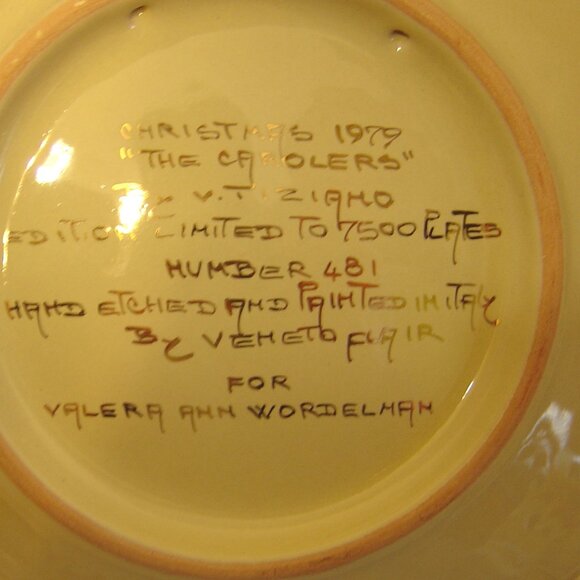 CHRISTMAS 1979
"THE CAROLERS"
By V. TIZIANO
EDITION LIMITED TO 7500 PLATES
NUMBER 481
HAND ETCHED AND PAINTED IN ITALY
By VENETO FLAIR
FOR
VALERA ANN WORDELMAN